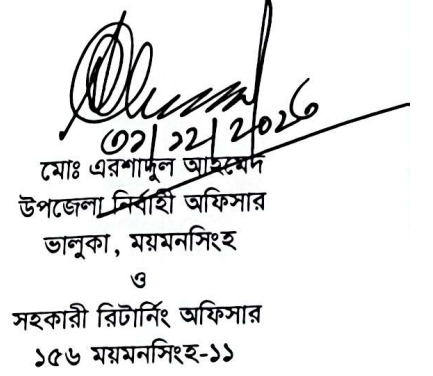 মোঃ এরশাদুল আহমেদ
উপজেলা নির্বাহী অফিসার
ভালুকা, ময়মনসিংহ
ও
সহকারী রিটার্নিং অফিসার
১৫৬ ময়মনসিংহ-১১